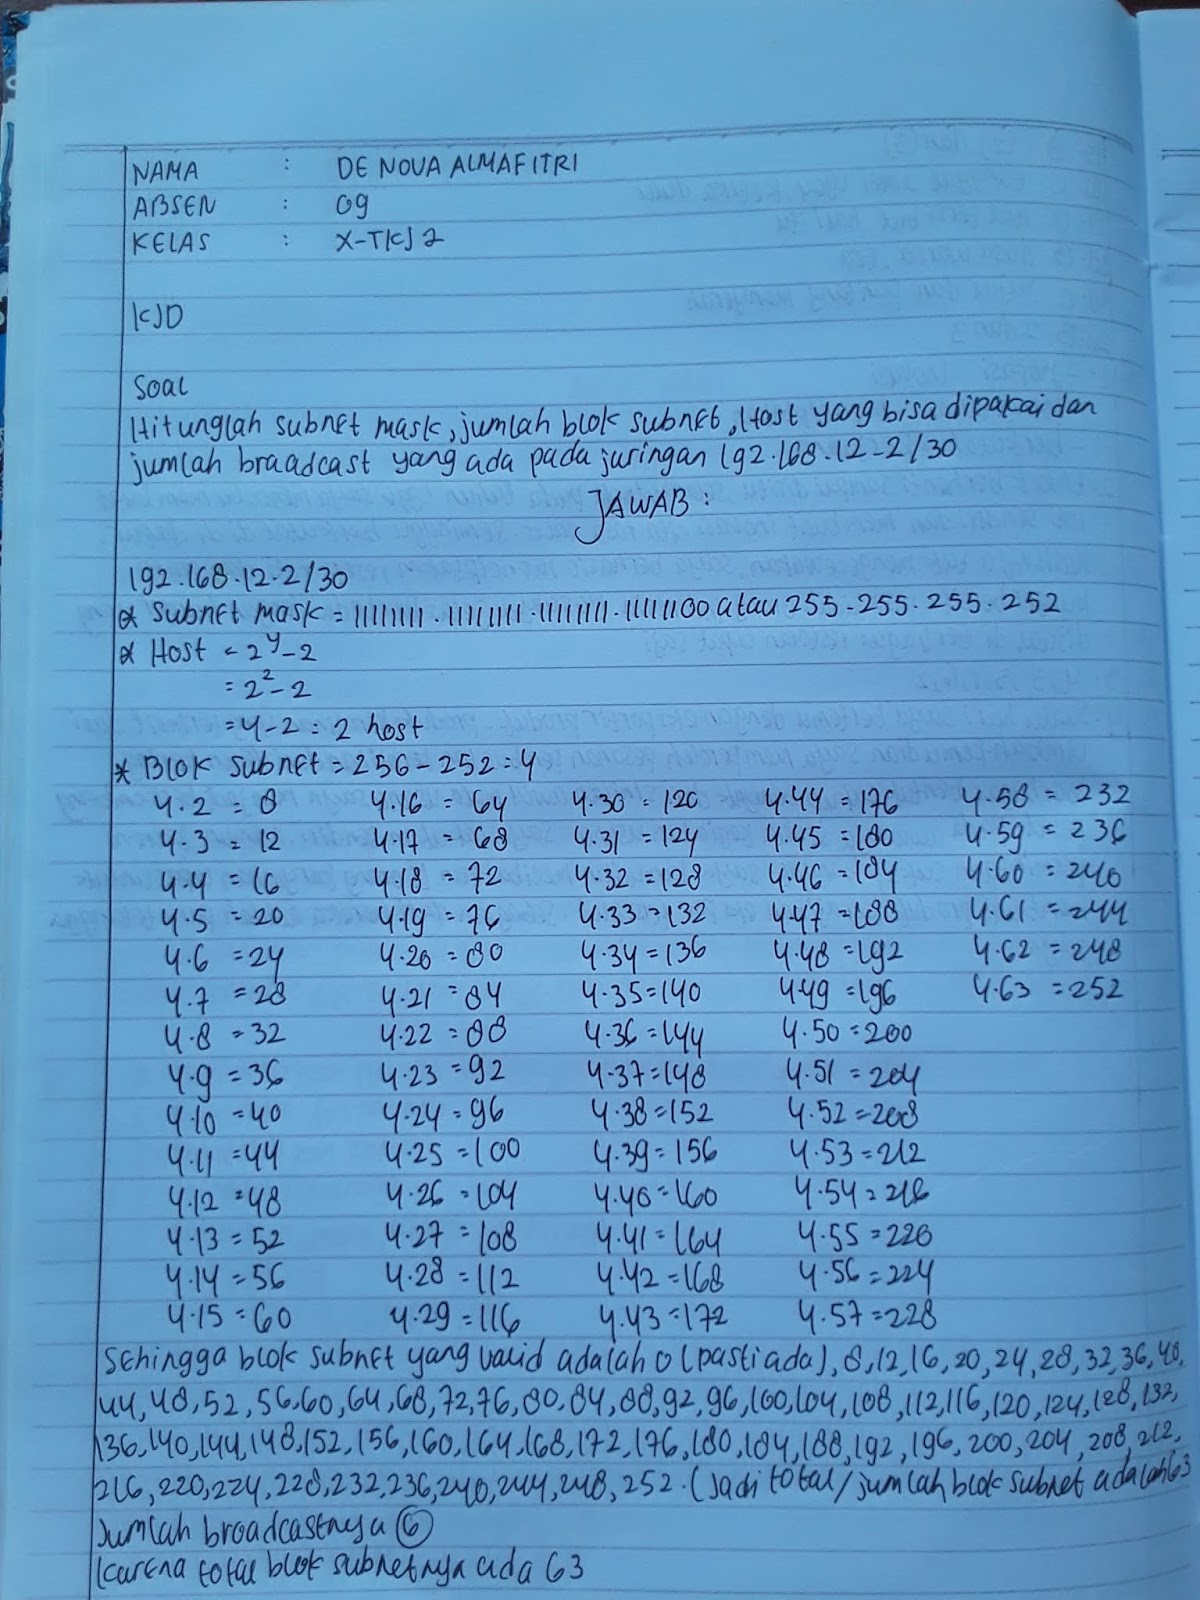 NAMA : DE NOVA ALMAFITRI
ABSEN : 09
KELAS : X-TKJ 2
KJD
Soal
Hitunglah subnet mask, jumlah blok subnet, Host yang bisa dipakai dan
jumlah braadcast yang ada pada jaringan 192.168.12-2/30
JAWAB :
192.168.12.2/30
* Subnet mask = 11111111.11111111.11111111.11111100 atau 255-255.255.252
* Host = 2^y-2
= 2^2-2
= 4-2 = 2 host
* Blok subnet = 256-252=4
4.2 = 8 4.16 = 64 4.30 = 120 4.44 = 176 4.58 = 232
4.3 = 12 4.17 = 68 4.31 = 124 4.45 = 180 4.59 = 236
4.4 = 16 4.18 = 72 4.32 = 128 4.46 = 184 4.60 = 240
4.5 = 20 4.19 = 76 4.33 = 132 4.47 = 188 4.61 = 244
4.6 = 24 4.20 = 80 4.34 = 136 4.48 = 192 4.62 = 248
4.7 = 28 4.21 = 84 4.35 = 140 4.49 = 196 4.63 = 252
4.8 = 32 4.22 = 88 4.36 = 144 4.50 = 200
4.9 = 36 4.23 = 92 4.37 = 148 4.51 = 204
4.10 = 40 4.24 = 96 4.38 = 152 4.52 = 208
4.11 = 44 4.25 = 100 4.39 = 156 4.53 = 212
4.12 = 48 4.26 = 104 4.40 = 160 4.54 = 216
4.13 = 52 4.27 = 108 4.41 = 164 4.55 = 220
4.14 = 56 4.28 = 112 4.42 = 168 4.56 = 224
4.15 = 60 4.29 = 116 4.43 = 172 4.57 = 228
Sehingga blok subnet yang valid adalah 0 (pasti ada), 8, 12, 16, 20, 24, 28, 32, 36, 40,
44, 48, 52, 56, 60, 64, 68, 72, 76, 80, 84, 88, 92, 96, 100, 104, 108, 112, 116, 120, 124, 128, 132,
136, 140, 144, 148, 152, 156, 160, 164, 168, 172, 176, 180, 184, 188, 192, 196, 200, 204, 208, 212,
216, 220, 224, 228, 232, 236, 240, 244, 248, 252. (Jadi total/jumlah blok subnet adalah 63
Jumlah broadcastnya 6
Karena total blok subnetnya ada 63